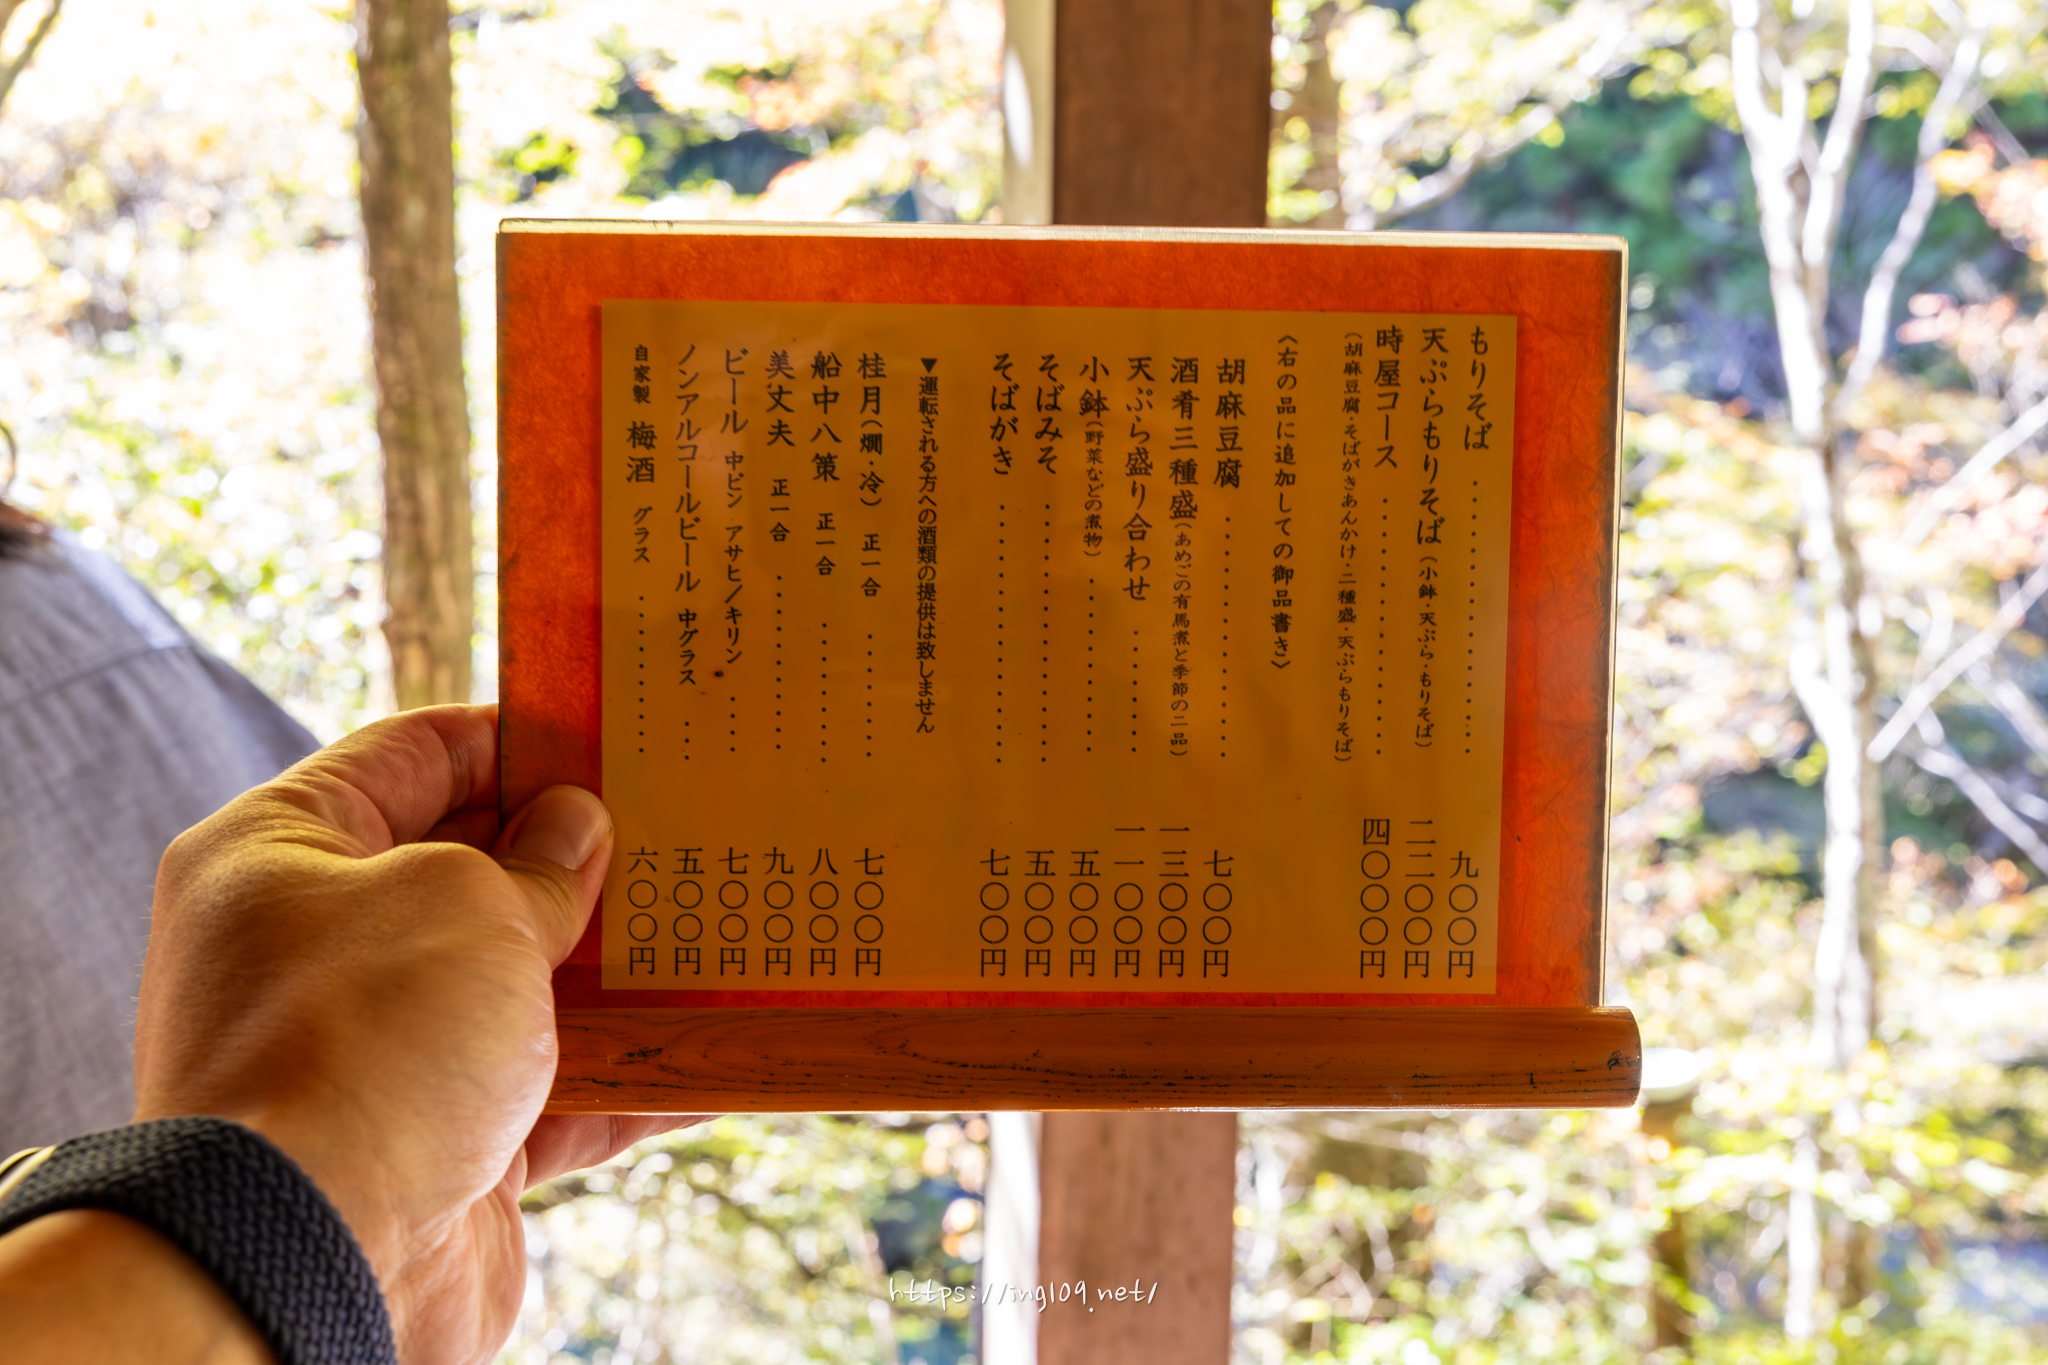 もりそば ・・・・・・・・・・・・・ 九〇〇円
天ぷらもりそば（小鉢・天ぷら・もりそば） 二二〇〇円
時屋コース ・・・・・・・・・・・・・ 四〇〇〇円
（胡麻豆腐・そばがきあんかけ・二種盛・天ぷらもりそば）
〈右の品に追加しての御品書き〉
胡麻豆腐 ・・・・・・・・・・・・ 七〇〇円
酒肴三種盛（あめごの有馬煮と季節の二品） 一三〇〇円
天ぷら盛り合わせ ・・・・・・・ 一一〇〇円
小鉢（野菜などの煮物） ・・・・・・・・・ 五〇〇円
そばみそ ・・・・・・・・・・・・・ 五〇〇円
そばがき ・・・・・・・・・・・・・ 七〇〇円
▼運転される方への酒類の提供は致しません
桂月（燗・冷） 正一合 ・・・・・・・ 七〇〇円
船中八策 正一合 ・・・・・・・・ 八〇〇円
美丈夫 正一合 ・・・・・・・・・・ 九〇〇円
ビール 中ビン アサヒ／キリン ・・・・ 七〇〇円
ノンアルコールビール 中グラス ・・・ 五〇〇円
自家製 梅酒 グラス ・・・・・・・・・ 六〇〇円
https://ing109.net/